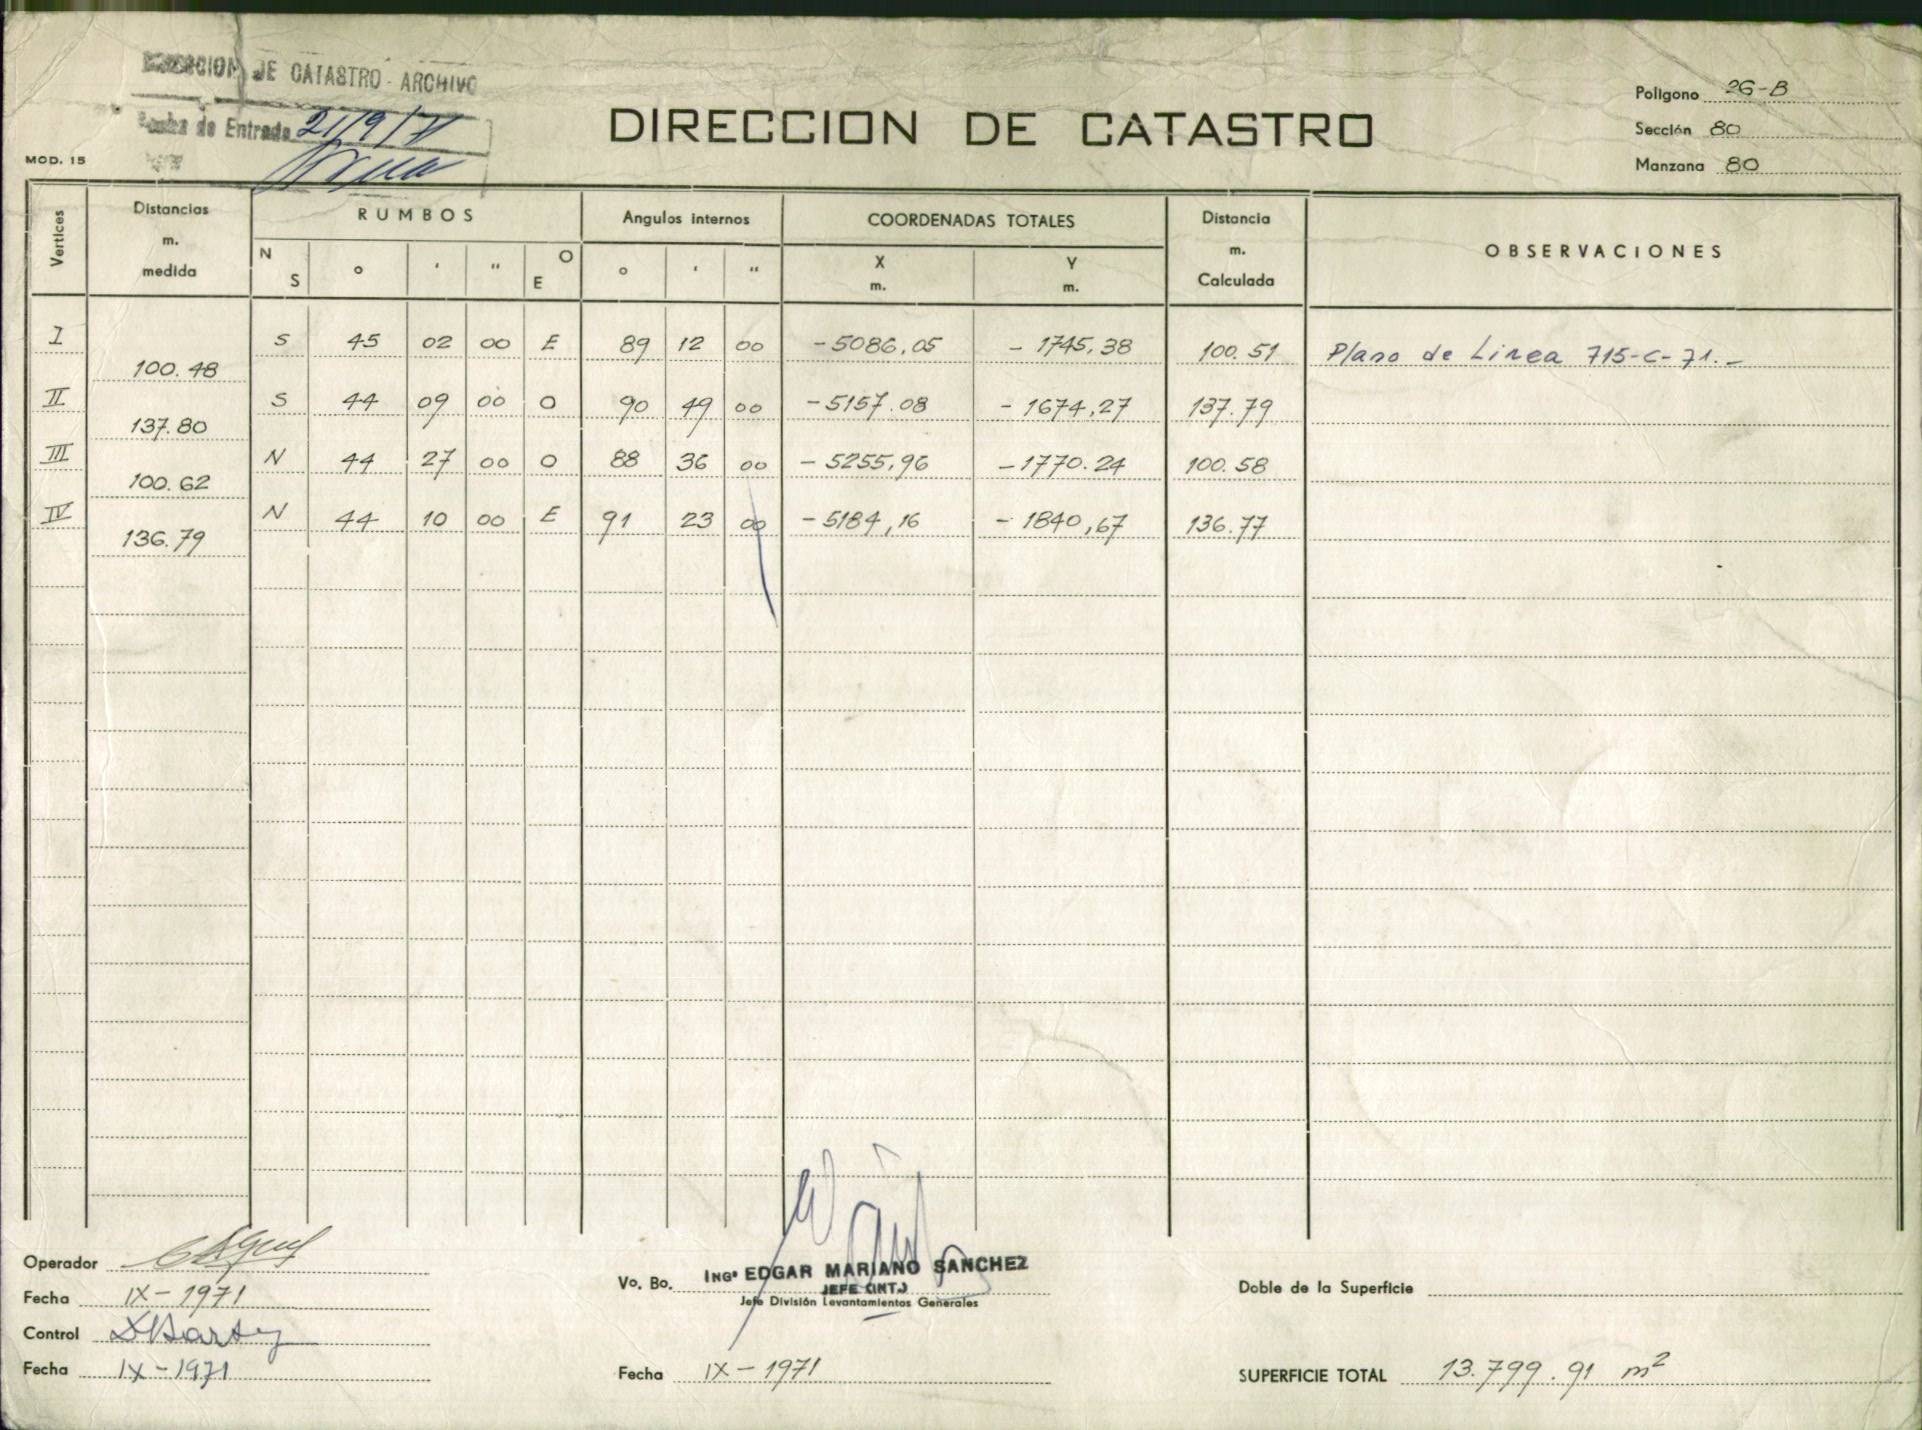 DIRECCION DE CATASTRO - ARCHIVO
Fecha de Entrada 21/9/71
MOD. 15
DIRECCION DE CATASTRO
Poligono 26-B
Sección 80
Manzana 80
Vertices
Distancias m. medida
RUMBOS
N S ° ' " O E
Angulos internos
° ' "
COORDENADAS TOTALES
X m. Y m.
Distancia m. Calculada
OBSERVACIONES
I 100.48 S 45 02 00 E 89 12 00 -5086,05 - 1745,38 100.51 Plano de Linea 715-C-71.-
II 137.80 S 44 09 00 O 90 49 00 -5157.08 - 1674,27 137.79
III 100.62 N 44 27 00 O 88 36 00 - 5255,96 -1770.24 100.58
IV 136.79 N 44 10 00 E 91 23 00 - 5184,16 - 1840,67 136.77
Operador
Fecha IX-1971
Control
Fecha IX-1971
Vo. Bo. ING° EDGAR MARIANO SANCHEZ
JEFE (INT.)
Jefe División Levantamientos Generales
Fecha IX-1971
Doble de la Superficie
SUPERFICIE TOTAL 13.799.91 m²